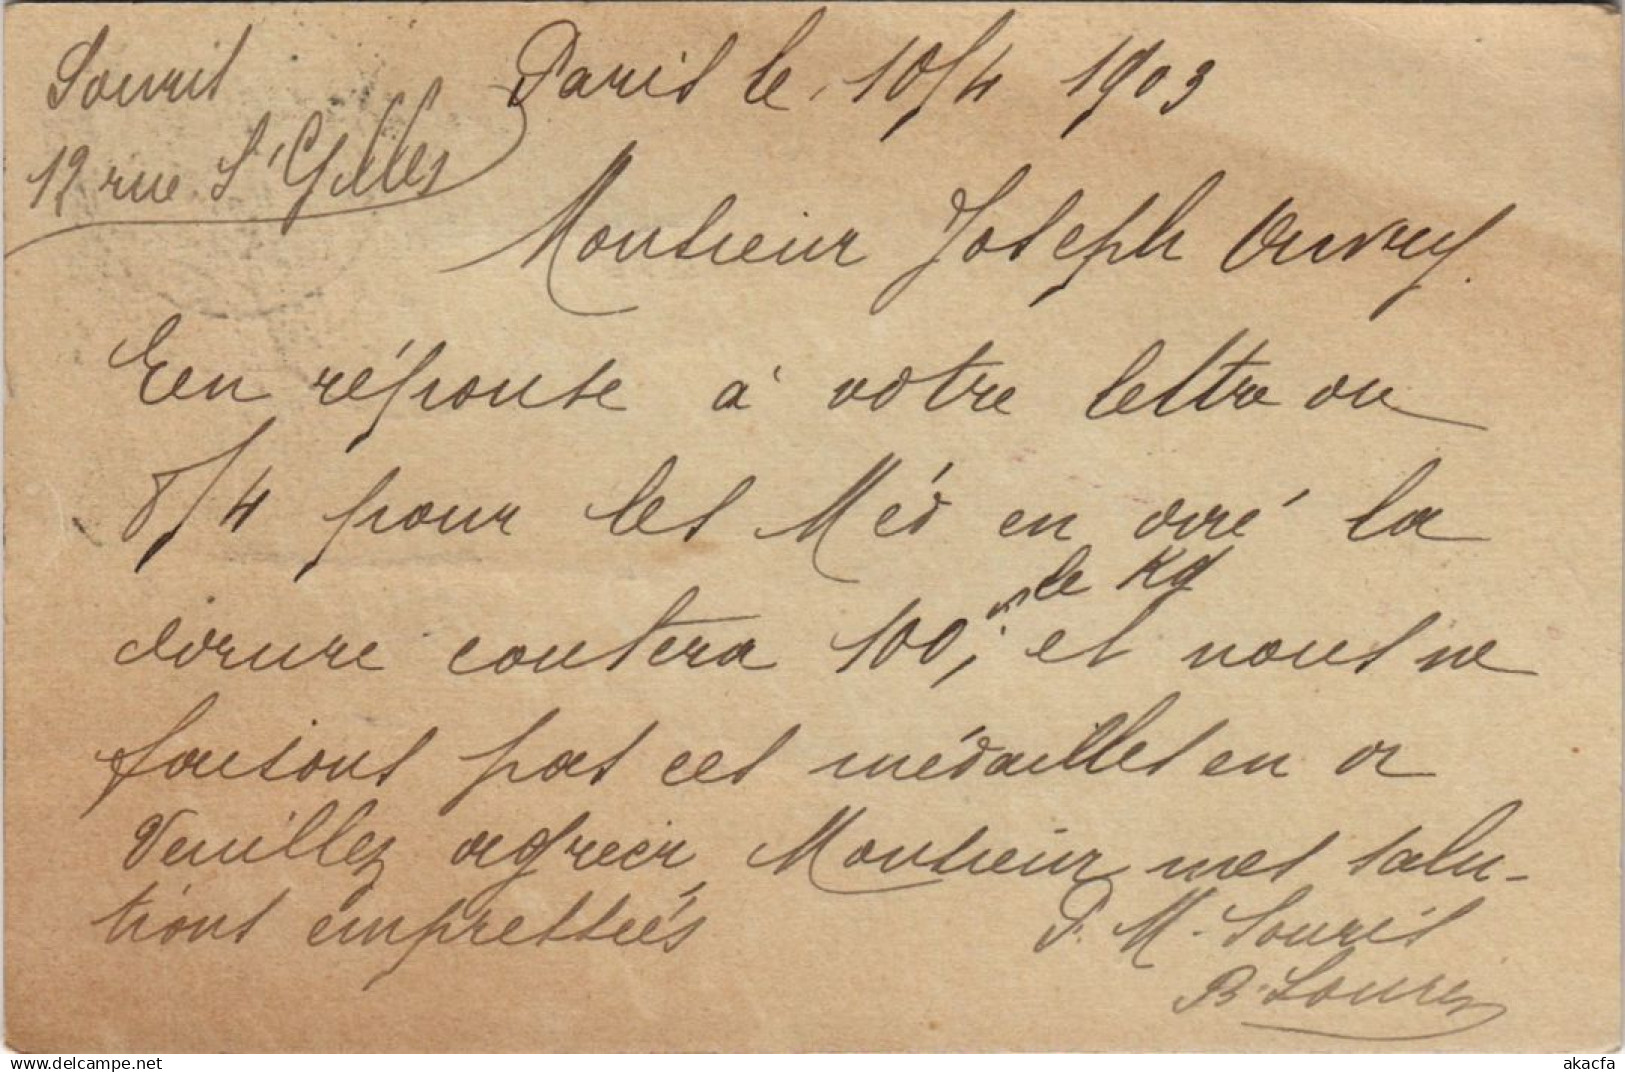 Souris
12 rue St Gilles
Paris le, 10/4 1903
Monsieur Joseph Ouvrey.
En réponse à votre lettre du
8/4 pour les Méd en doré la
le Kg
dorure coutera 100, et nous ne
faisons pas ces médailles en or
Veuillez agréer, Monsieur mes salu-
tions empressées
P. M. Souris
B. Souris
www.delcampe.net
akacfa